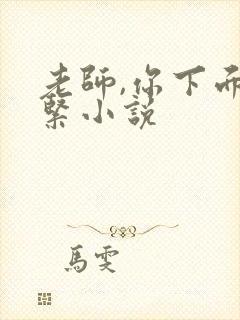 老師,你下面
緊小說
馬雯